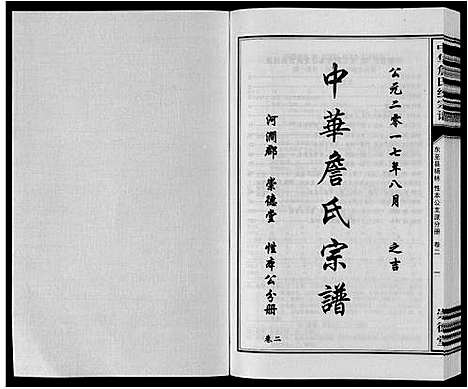 公元二零一七年八月 之吉
中華詹氏宗譜
河澗郡 崇德堂 性本公分册 卷二
中华詹氏统宗谱
东至县杨林 性本公支源分册 卷二 一
崇德堂